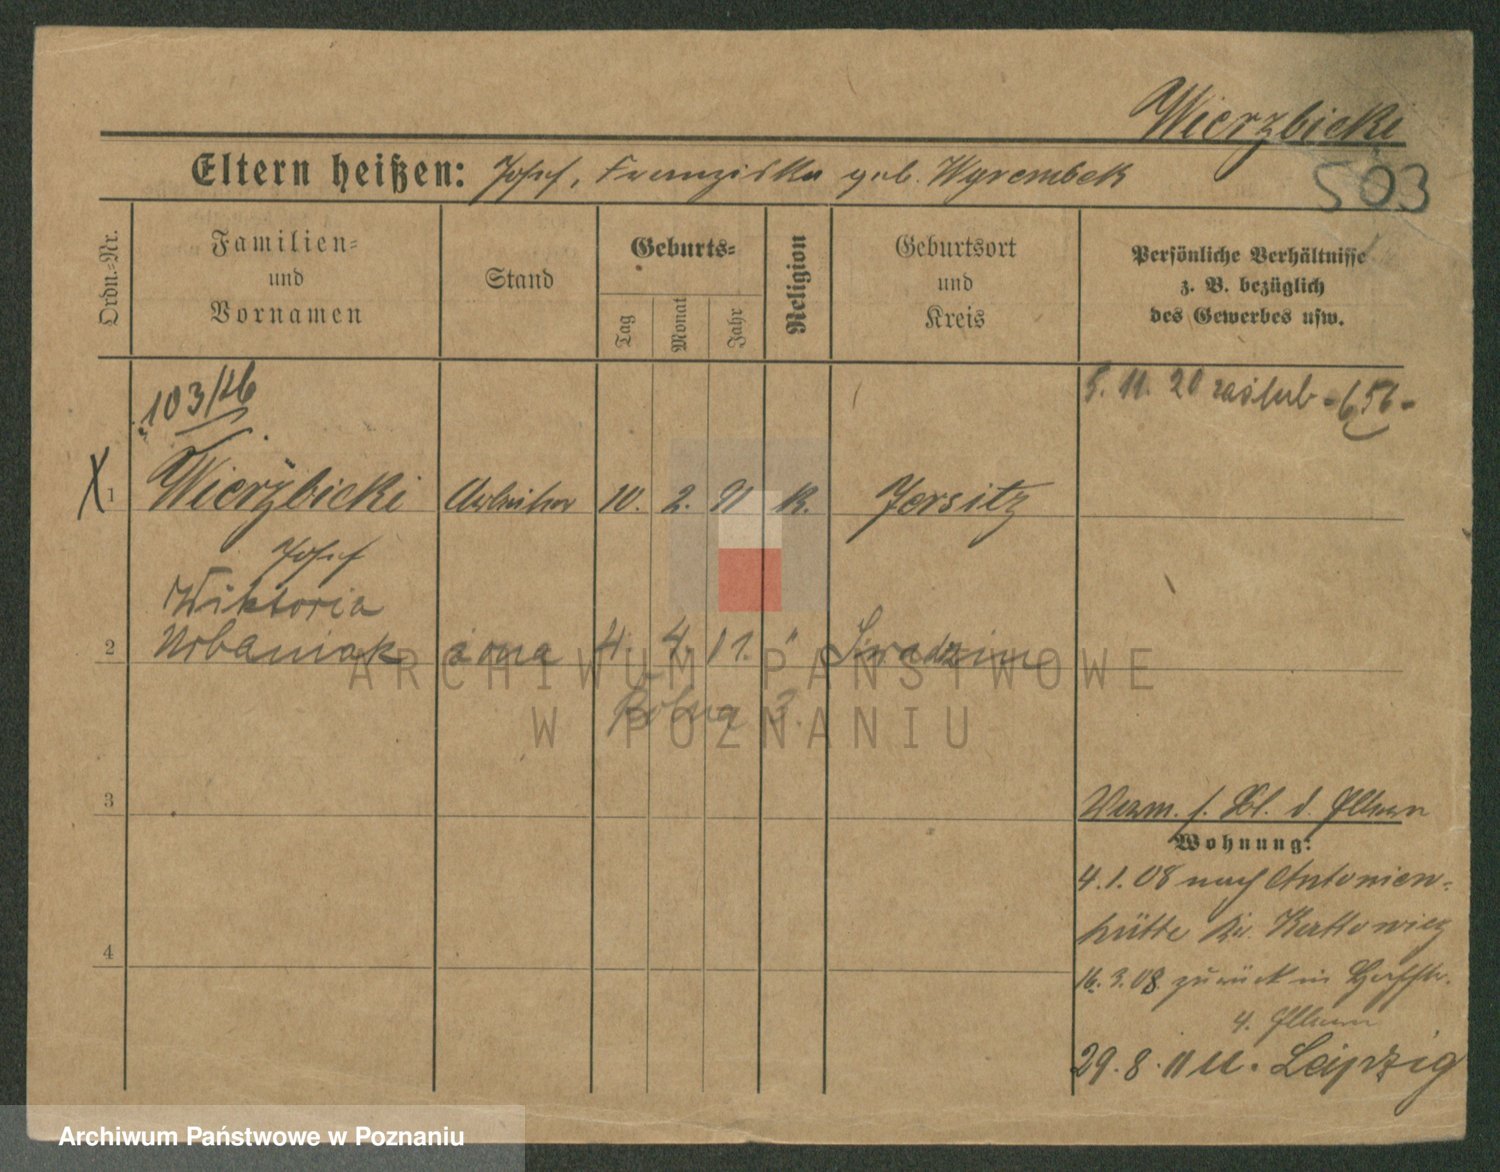 Wierzbicki
503
Eltern heißen: Josef, Franziska geb. Wyrembek
Ordn.-Nr.
Familien-
und
Vornamen
Stand
Geburts-
Tag
Monat
Jahr
Religion
Geburtsort
und
Kreis
Persönliche Verhältnisse
z. B. bezüglich
des Gewerbes usw.
103/26
5. 11. 20 zaślub - 656 -
X 1 Wierzbicki Arbeiter 10. 2. 91 k. Jersitz
Josef
Wiktoria
2 Urbaniak żona 4. 4. 11. "
3
Verm. s. Bl. d. Eltern
Wohnung:
4.1.08 nach Antonien-
hütte Kr. Kattowitz
4
16.3.08 zurück in
z. Eltern
29.8.11 u. Leipzig
ARCHIWUM PAŃSTWOWE
W POZNANIU
Archiwum Państwowe w Poznaniu